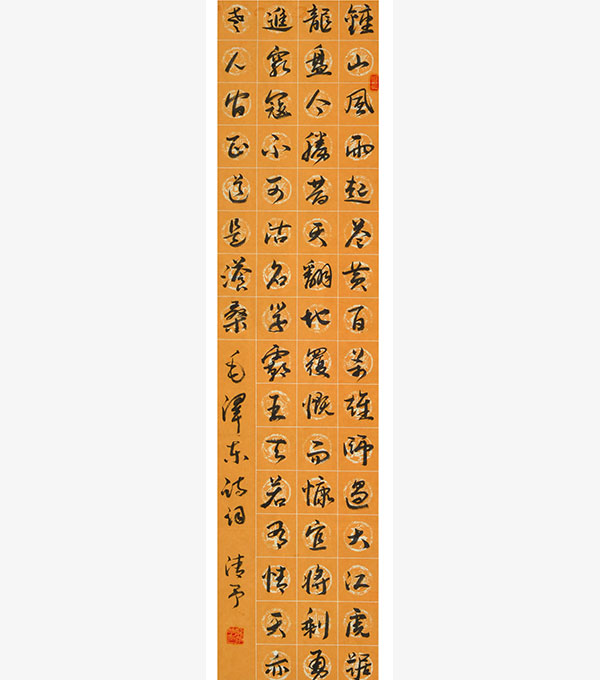 鍾山風雨起苍黄百萬雄師過大江虎踞
龍盤今勝昔天翻地覆慨而慷宜將剩勇
追窮寇不可沽名学霸王天若有情天亦
老人间正道是滄桑 毛澤东诗词 清予